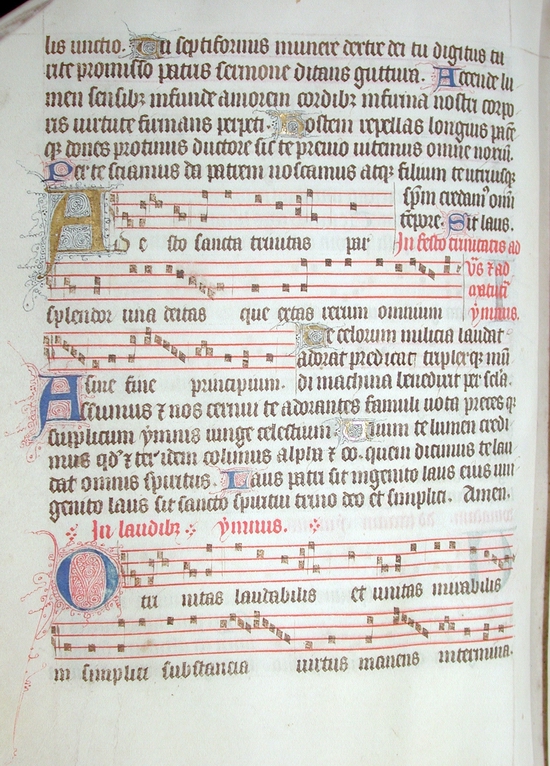 lis unctio. Tu septiformis munere dextre dei tu digitus tu
rite promisso patris sermone ditans guttura. Accende lu
men sensibz infunde amorem cordibz infirma nostri corpo
ris uirtute firmans perpeti. Hostem repellas longius pacē
qz dones protinus ductore sic te preuio uitemus omne noxiū.
Per te sciamus da patrem noscamus atqz filium te utriusqz
spm credam9 omī
tēpore. Sit laus.
In festo trinitatis ad
ymnus.
Adesto sancta trinitas par
splendor una deitas que extas rerum omnium
sine fine principium.
Te celorum militia laudat
adorat predicat triplexqz mū
di machina benedixit per scla.
Assumus ⁊ nos cernui te adorantes famuli uota precesqz
supplicum ymnis iunge celestium. Unum te lumen credi
mus qd ⁊ ter idem colimus alpha ⁊ oo. quem dicimus te lau
dat omnis spiritus. Laus patri sit ingenito laus eius uni
genito laus sit sancto spiritui trino deo et simplici. Amen.
In laudibz ymnus.
O trinitas laudabilis et unitas mirabilis
in simplici substancia uirtus manens intermina.